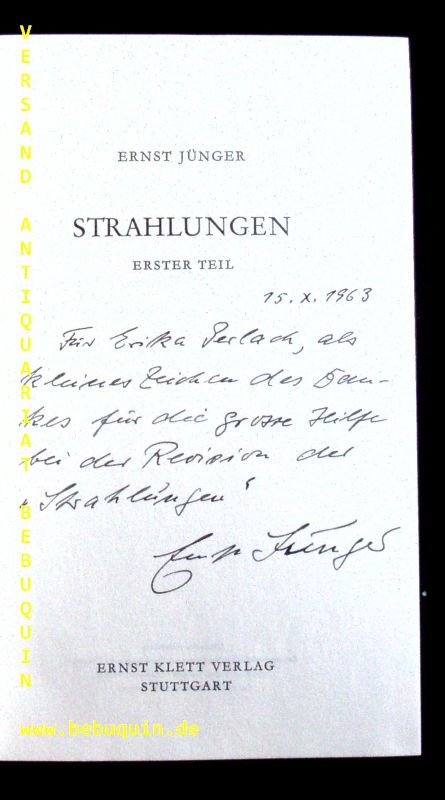 ERNST JÜNGER
STRAHLUNGEN
ERSTER TEIL
15. X. 1963
Für Erika Perlach, als
kleines Zeichen des Dan-
kes für die grosse Hilfe
bei der Revision der
„Strahlungen"
Ernst Jünger
ERNST KLETT VERLAG
STUTTGART
VERSAND ANTIQUARIAT BEBUQUIN
www.bebuquin.de